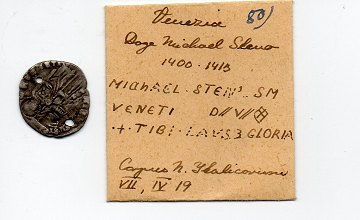 Venezia 80)
Doge Michael Steno
1400-1413
MICHAEL·STEN'·SM
VENETI D//V//
+·TIBI·LAVS 3 GLORIA
Corpus N. Italicorum
VII, IV 19